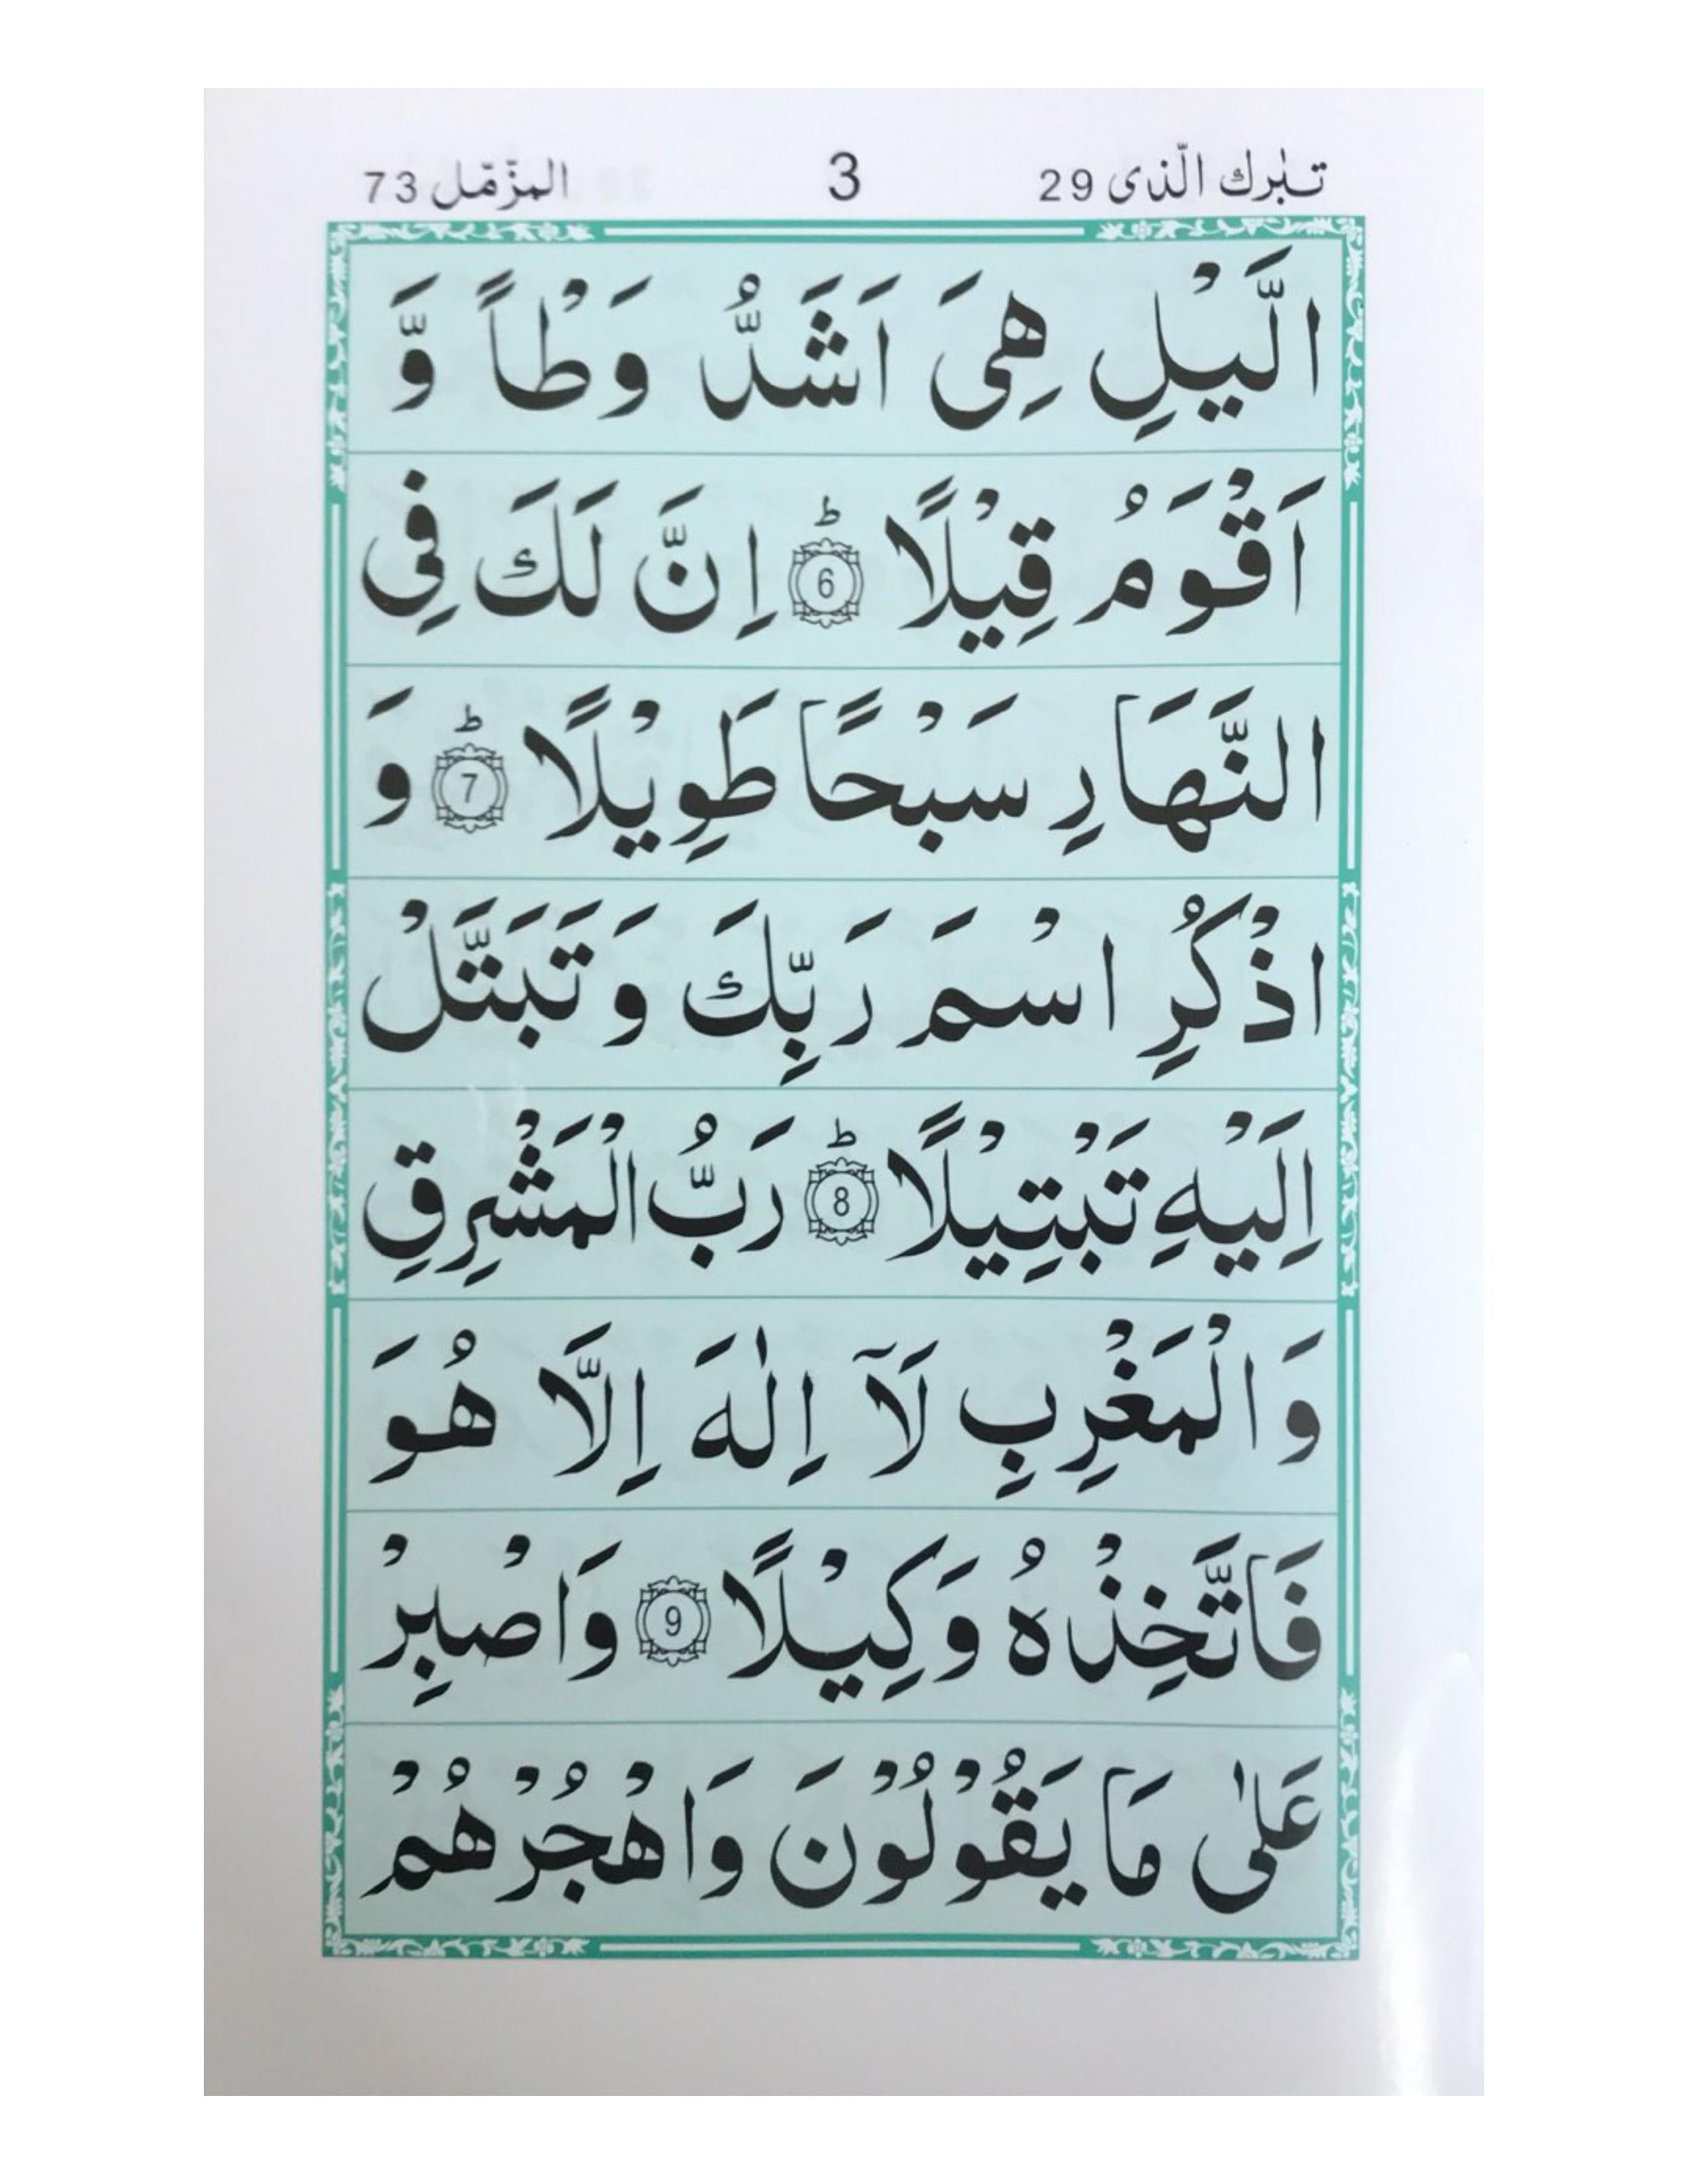 تبٰرك الّذى 29 3 المزّمّل 73
الَّيْلِ هِىَ اَشَدُّ وَطْاً وَّ
اَقْوَمُ قِيْلًا ؕ 6 اِنَّ لَكَ فِى
النَّهَارِ سَبْحًا طَوِيْلًا ؕ 7 وَ
اذْكُرِ اسْمَ رَبِّكَ وَتَبَتَّلْ
اِلَيْهِ تَبْتِيْلًا ؕ 8 رَبُّ الْمَشْرِقِ
وَالْمَغْرِبِ لَاۤ اِلٰهَ اِلَّا هُوَ
فَاتَّخِذْهُ وَكِيْلًا 9 وَاصْبِرْ
عَلٰى مَا يَقُوْلُوْنَ وَاهْجُرْهُمْ